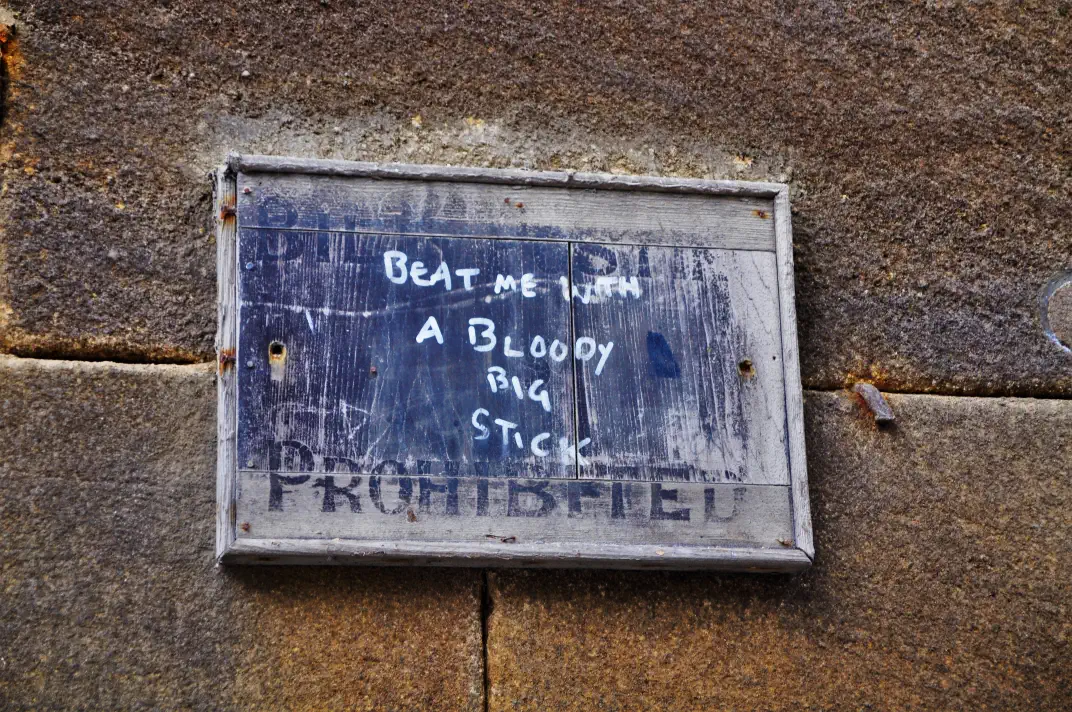 BEAT ME WITH
A BLOODY
BIG
STICK
PROHIBITED